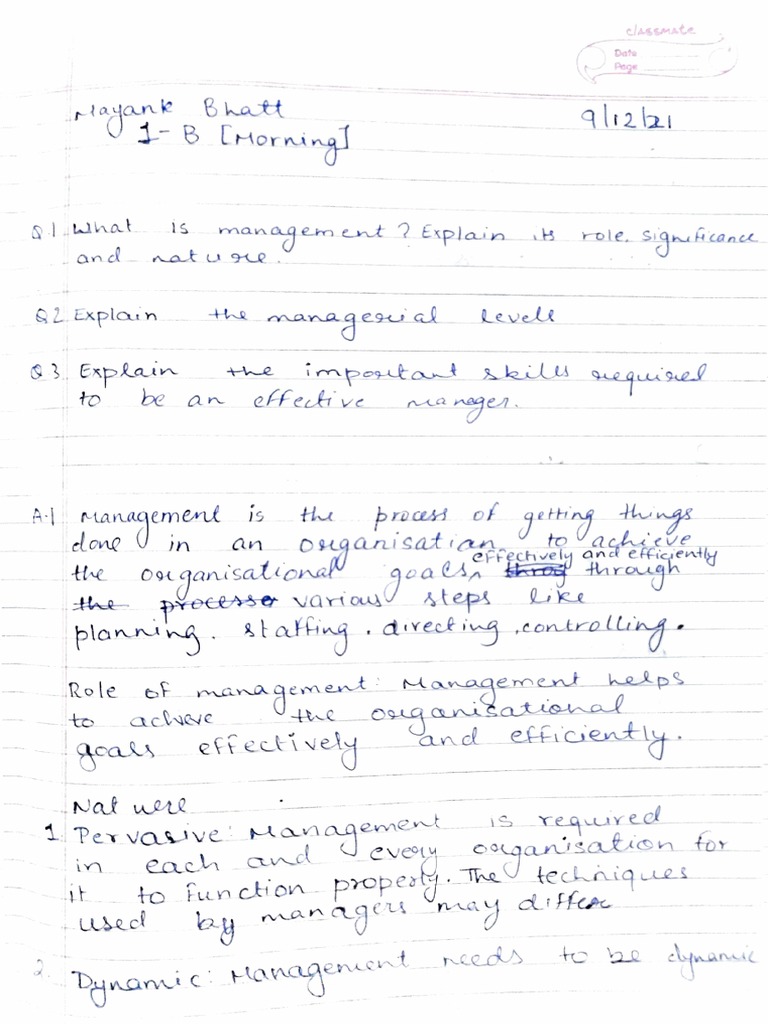 classmate
Date
Page
Mayank Bhatt
9/12/21
1-B [Morning]
Q1 What is management? Explain its role. significance
and nature.
Q2 Explain the managerial levels
Q3 Explain the important skills required
to be an effective manager.
A.1 Management is the process of getting things
done in an organisation to achieve
effectively and efficiently
the organisational goals, throg through
the process various steps like
planning. staffing. directing. controlling.
Role of management: Management helps
to achieve the organisational
goals effectively and efficiently.
Nature
1. Pervasive: Management is required
in each and every organisation for
it to function property. The techniques
used by managers may differ
2. Dynamic: Management needs to be dynamic